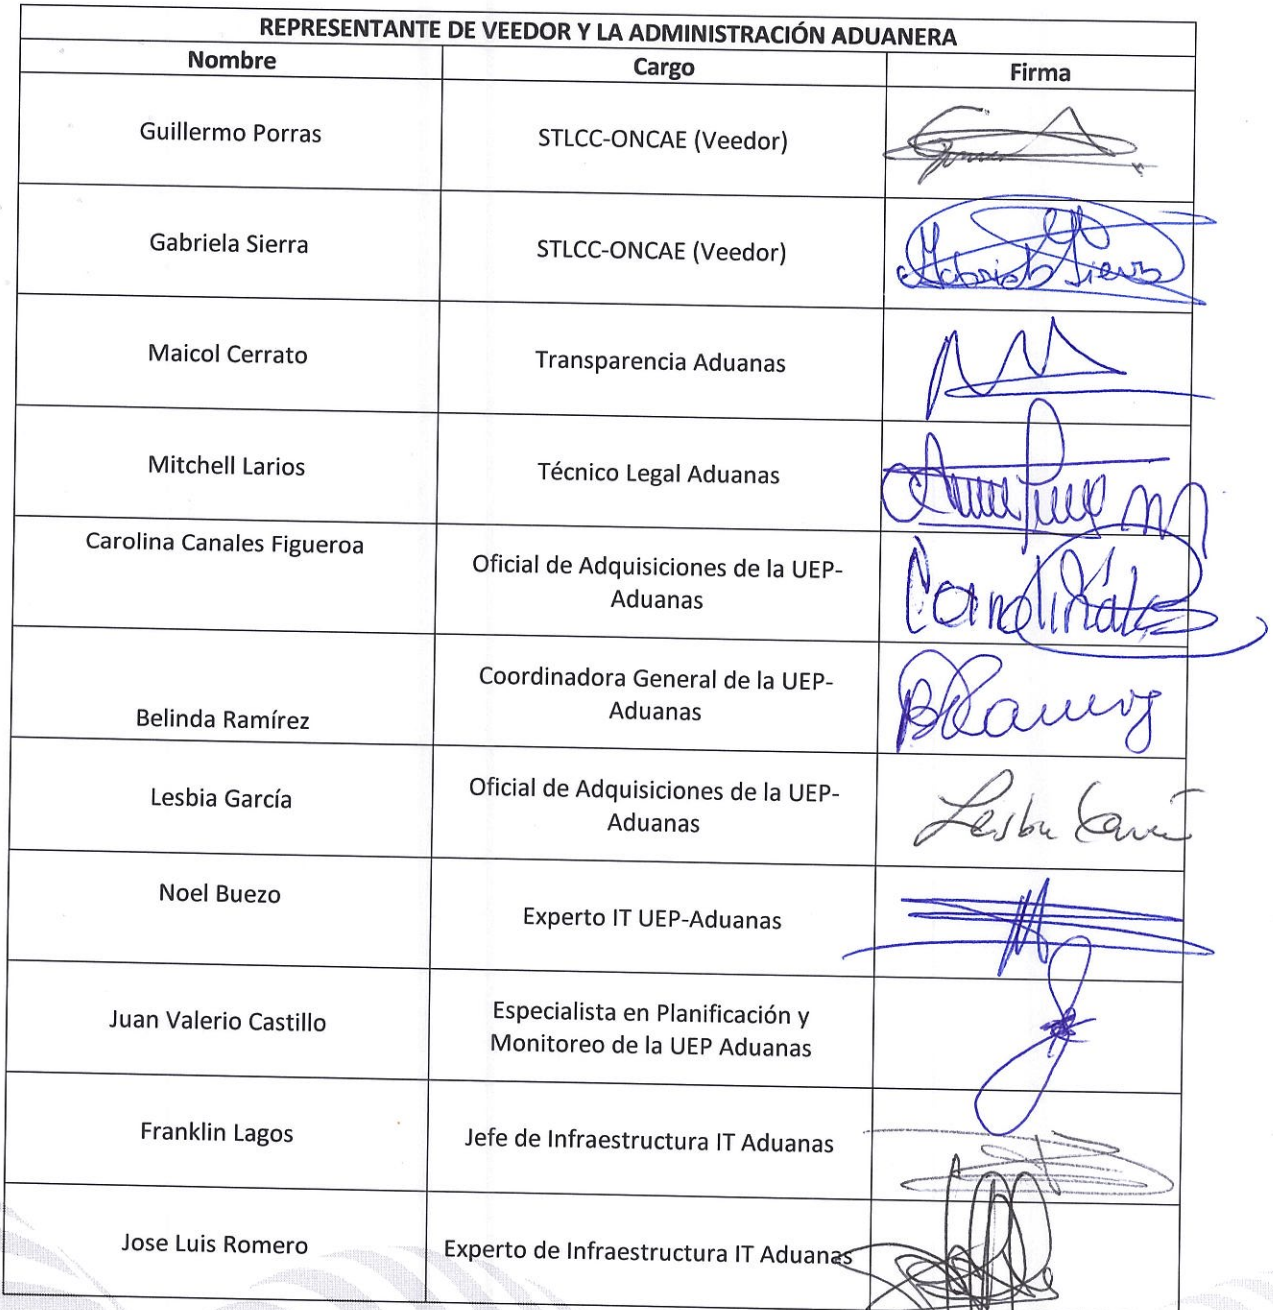 REPRESENTANTE DE VEEDOR Y LA ADMINISTRACIÓN ADUANERA
Nombre Cargo Firma
Guillermo Porras STLCC-ONCAE (Veedor)
Gabriela Sierra STLCC-ONCAE (Veedor) Gabriela Sierra
Maicol Cerrato Transparencia Aduanas
Mitchell Larios Técnico Legal Aduanas
Carolina Canales Figueroa Oficial de Adquisiciones de la UEP-
Aduanas
Coordinadora General de la UEP-
Belinda Ramírez Aduanas
Lesbia García Oficial de Adquisiciones de la UEP-
Aduanas
Noel Buezo Experto IT UEP-Aduanas
Juan Valerio Castillo Especialista en Planificación y
Monitoreo de la UEP Aduanas
Franklin Lagos Jefe de Infraestructura IT Aduanas
Jose Luis Romero Experto de Infraestructura IT Aduanas